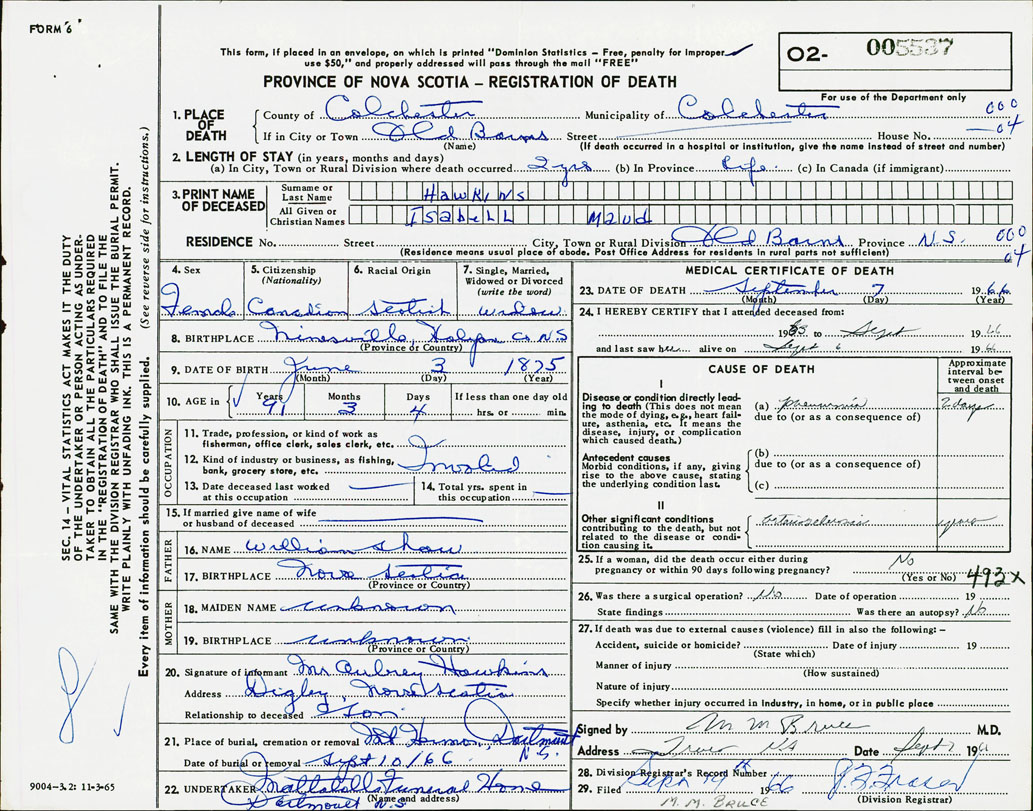 FORM 6
This form, if placed in an envelope, on which is printed "Dominion Statistics – Free, penalty for Improper
use $50," and properly addressed will pass through the mail "FREE"
O2- 005537
For use of the Department only
PROVINCE OF NOVA SCOTIA – REGISTRATION OF DEATH
1. PLACE OF DEATH
County of Colchester Municipality of Colchester 000
If in City or Town Old Barns Street House No. 04
(Name) (If death occurred in a hospital or institution, give the name instead of street and number)
2. LENGTH OF STAY (in years, months and days)
(a) In City, Town or Rural Division where death occurred 2 yrs (b) In Province Life (c) In Canada (if immigrant)
3. PRINT NAME OF DECEASED
Surname or Last Name HAWKINS
All Given or Christian Names ISABELL MAUD
RESIDENCE No. Street City, Town or Rural Division Old Barns Province N.S. 000
(Residence means usual place of abode. Post Office Address for residents in rural parts not sufficient) 04
4. Sex
Female
5. Citizenship
(Nationality)
Canadian
6. Racial Origin
Scotish
7. Single, Married,
Widowed or Divorced
(write the word)
widow
8. BIRTHPLACE Co NS
(Province or Country)
9. DATE OF BIRTH June 3 1875
(Month) (Day) (Year)
10. AGE in Years Months Days If less than one day old
91 3 4 hrs. or min.
OCCUPATION
11. Trade, profession, or kind of work as
fisherman, office clerk, sales clerk, etc.
12. Kind of industry or business, as fishing,
bank, grocery store, etc. Invalid
13. Date deceased last worked
at this occupation
14. Total yrs. spent in
this occupation
15. If married give name of wife
or husband of deceased
FATHER
16. NAME William Shaw
17. BIRTHPLACE Nova Scotia
(Province or Country)
MOTHER
18. MAIDEN NAME unknown
19. BIRTHPLACE unknown
(Province or Country)
20. Signature of informant Mr Aubrey Hawkins
Address Digby, Nova Scotia
Relationship to deceased Son
21. Place of burial, cremation or removal Mt Hermon, Dartmouth
N.S.
Date of burial or removal Sept 10/66
22. UNDERTAKER Mattatalls Funeral Home
(Name and address)
Dartmouth N.S.
MEDICAL CERTIFICATE OF DEATH
23. DATE OF DEATH September 7 1966
(Month) (Day) (Year)
24. I HEREBY CERTIFY that I attended deceased from:
19 to Sept 1966
and last saw her alive on Sept 6 1966
CAUSE OF DEATH
Approximate
interval be-
tween onset
and death
I
Disease or condition directly lead-
ing to death (This does not mean
the mode of dying, e.g., heart fail-
ure, asthenia, etc. It means the
disease, injury, or complication
which caused death.)
(a) pneumonia 2 days
due to (or as a consequence of)
Antecedent causes
Morbid conditions, if any, giving
rise to the above cause, stating
the underlying condition last.
(b)
due to (or as a consequence of)
(c)
II
Other significant conditions
contributing to the death, but not
related to the disease or condi-
tion causing it.
years
25. If a woman, did the death occur either during
pregnancy or within 90 days following pregnancy? No
(Yes or No) 493X
26. Was there a surgical operation? No Date of operation 19
State findings Was there an autopsy? No
27. If death was due to external causes (violence) fill in also the following: –
Accident, suicide or homicide? Date of injury 19
(State which)
Manner of injury
(How sustained)
Nature of injury
Specify whether injury occurred in Industry, in home, or in public place
Signed by M M Bruce M.D.
Address Truro NS Date Sept 7 1966
28. Division Registrar's Record Number
29. Filed Sept 14th 1966 J. F. Fraser
(Division Registrar)
M. M. BRUCE
SEC. 14 – VITAL STATISTICS ACT MAKES IT THE DUTY
OF THE UNDERTAKER OR PERSON ACTING AS UNDER-
TAKER TO OBTAIN ALL THE PARTICULARS REQUIRED
IN THE "REGISTRATION OF DEATH" AND TO FILE THE
SAME WITH THE DIVISION REGISTRAR WHO SHALL ISSUE THE BURIAL PERMIT.
WRITE PLAINLY WITH UNFADING INK. THIS IS A PERMANENT RECORD.
Every item of information should be carefully supplied. (See reverse side for instructions.)
9004-3.2: 11-3-65